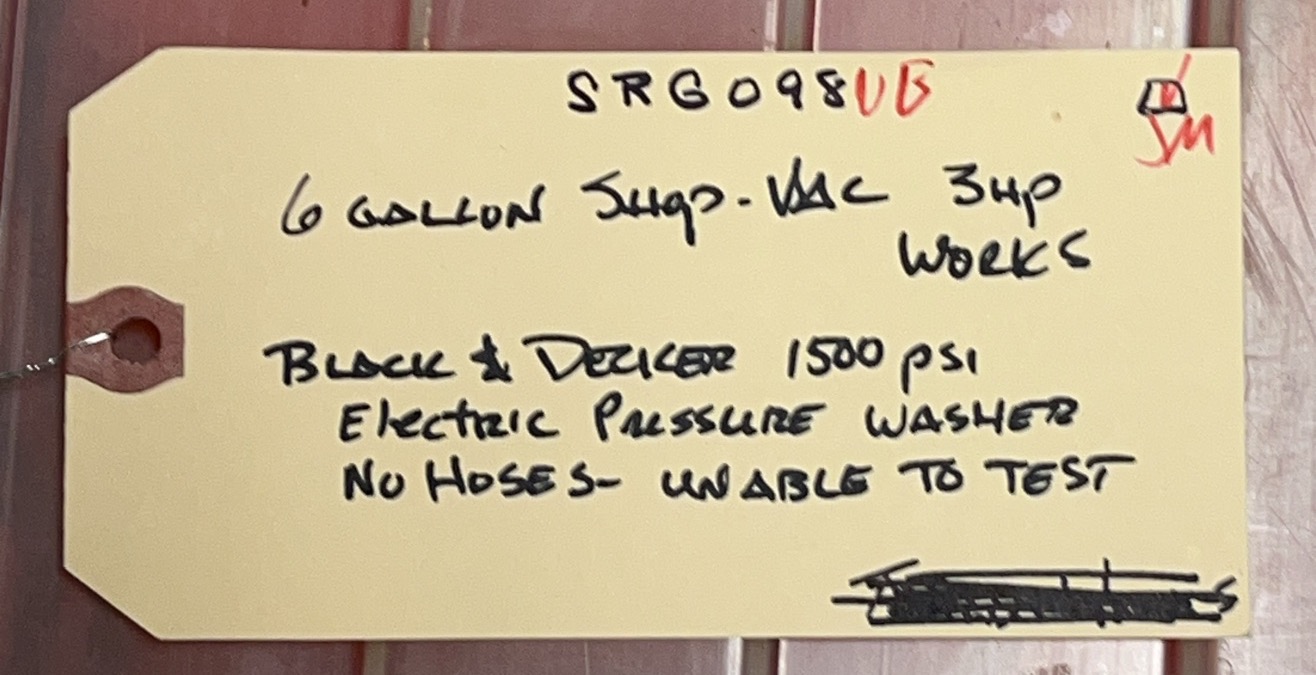 SRG098UB
JM
6 GALLON SHOP-VAC 3HP
WORKS
BLACK & DECKER 1500 PSI
Electric PRESSURE WASHER
NO HOSES- UNABLE TO TEST